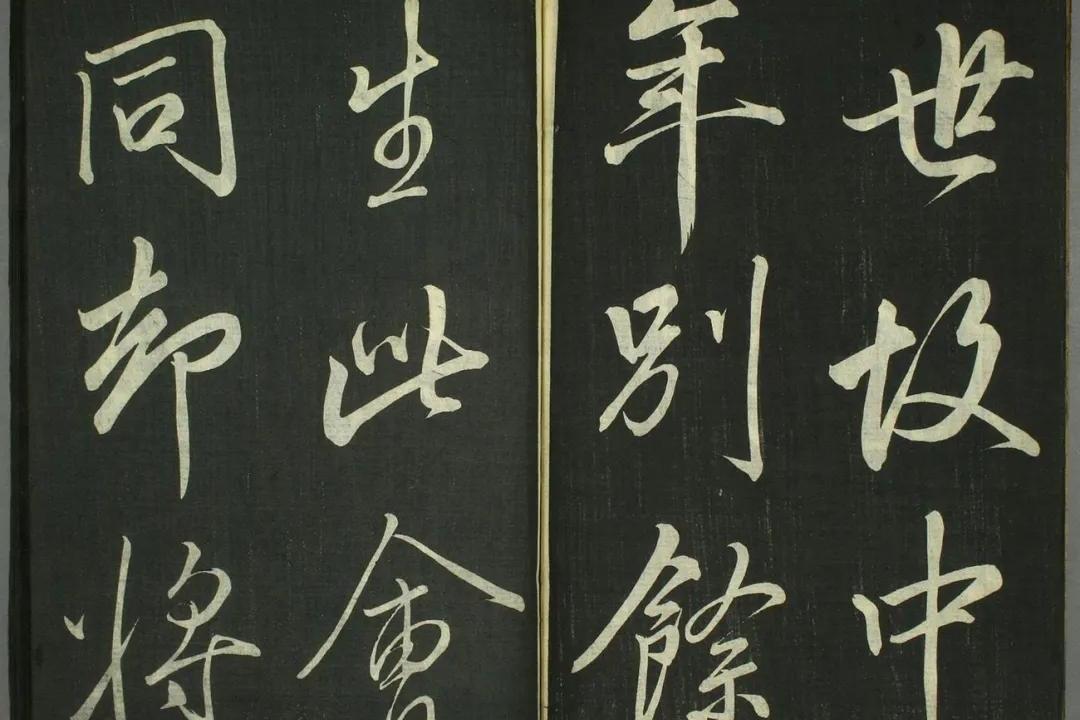 世故中
年別餘
生此會
同却將